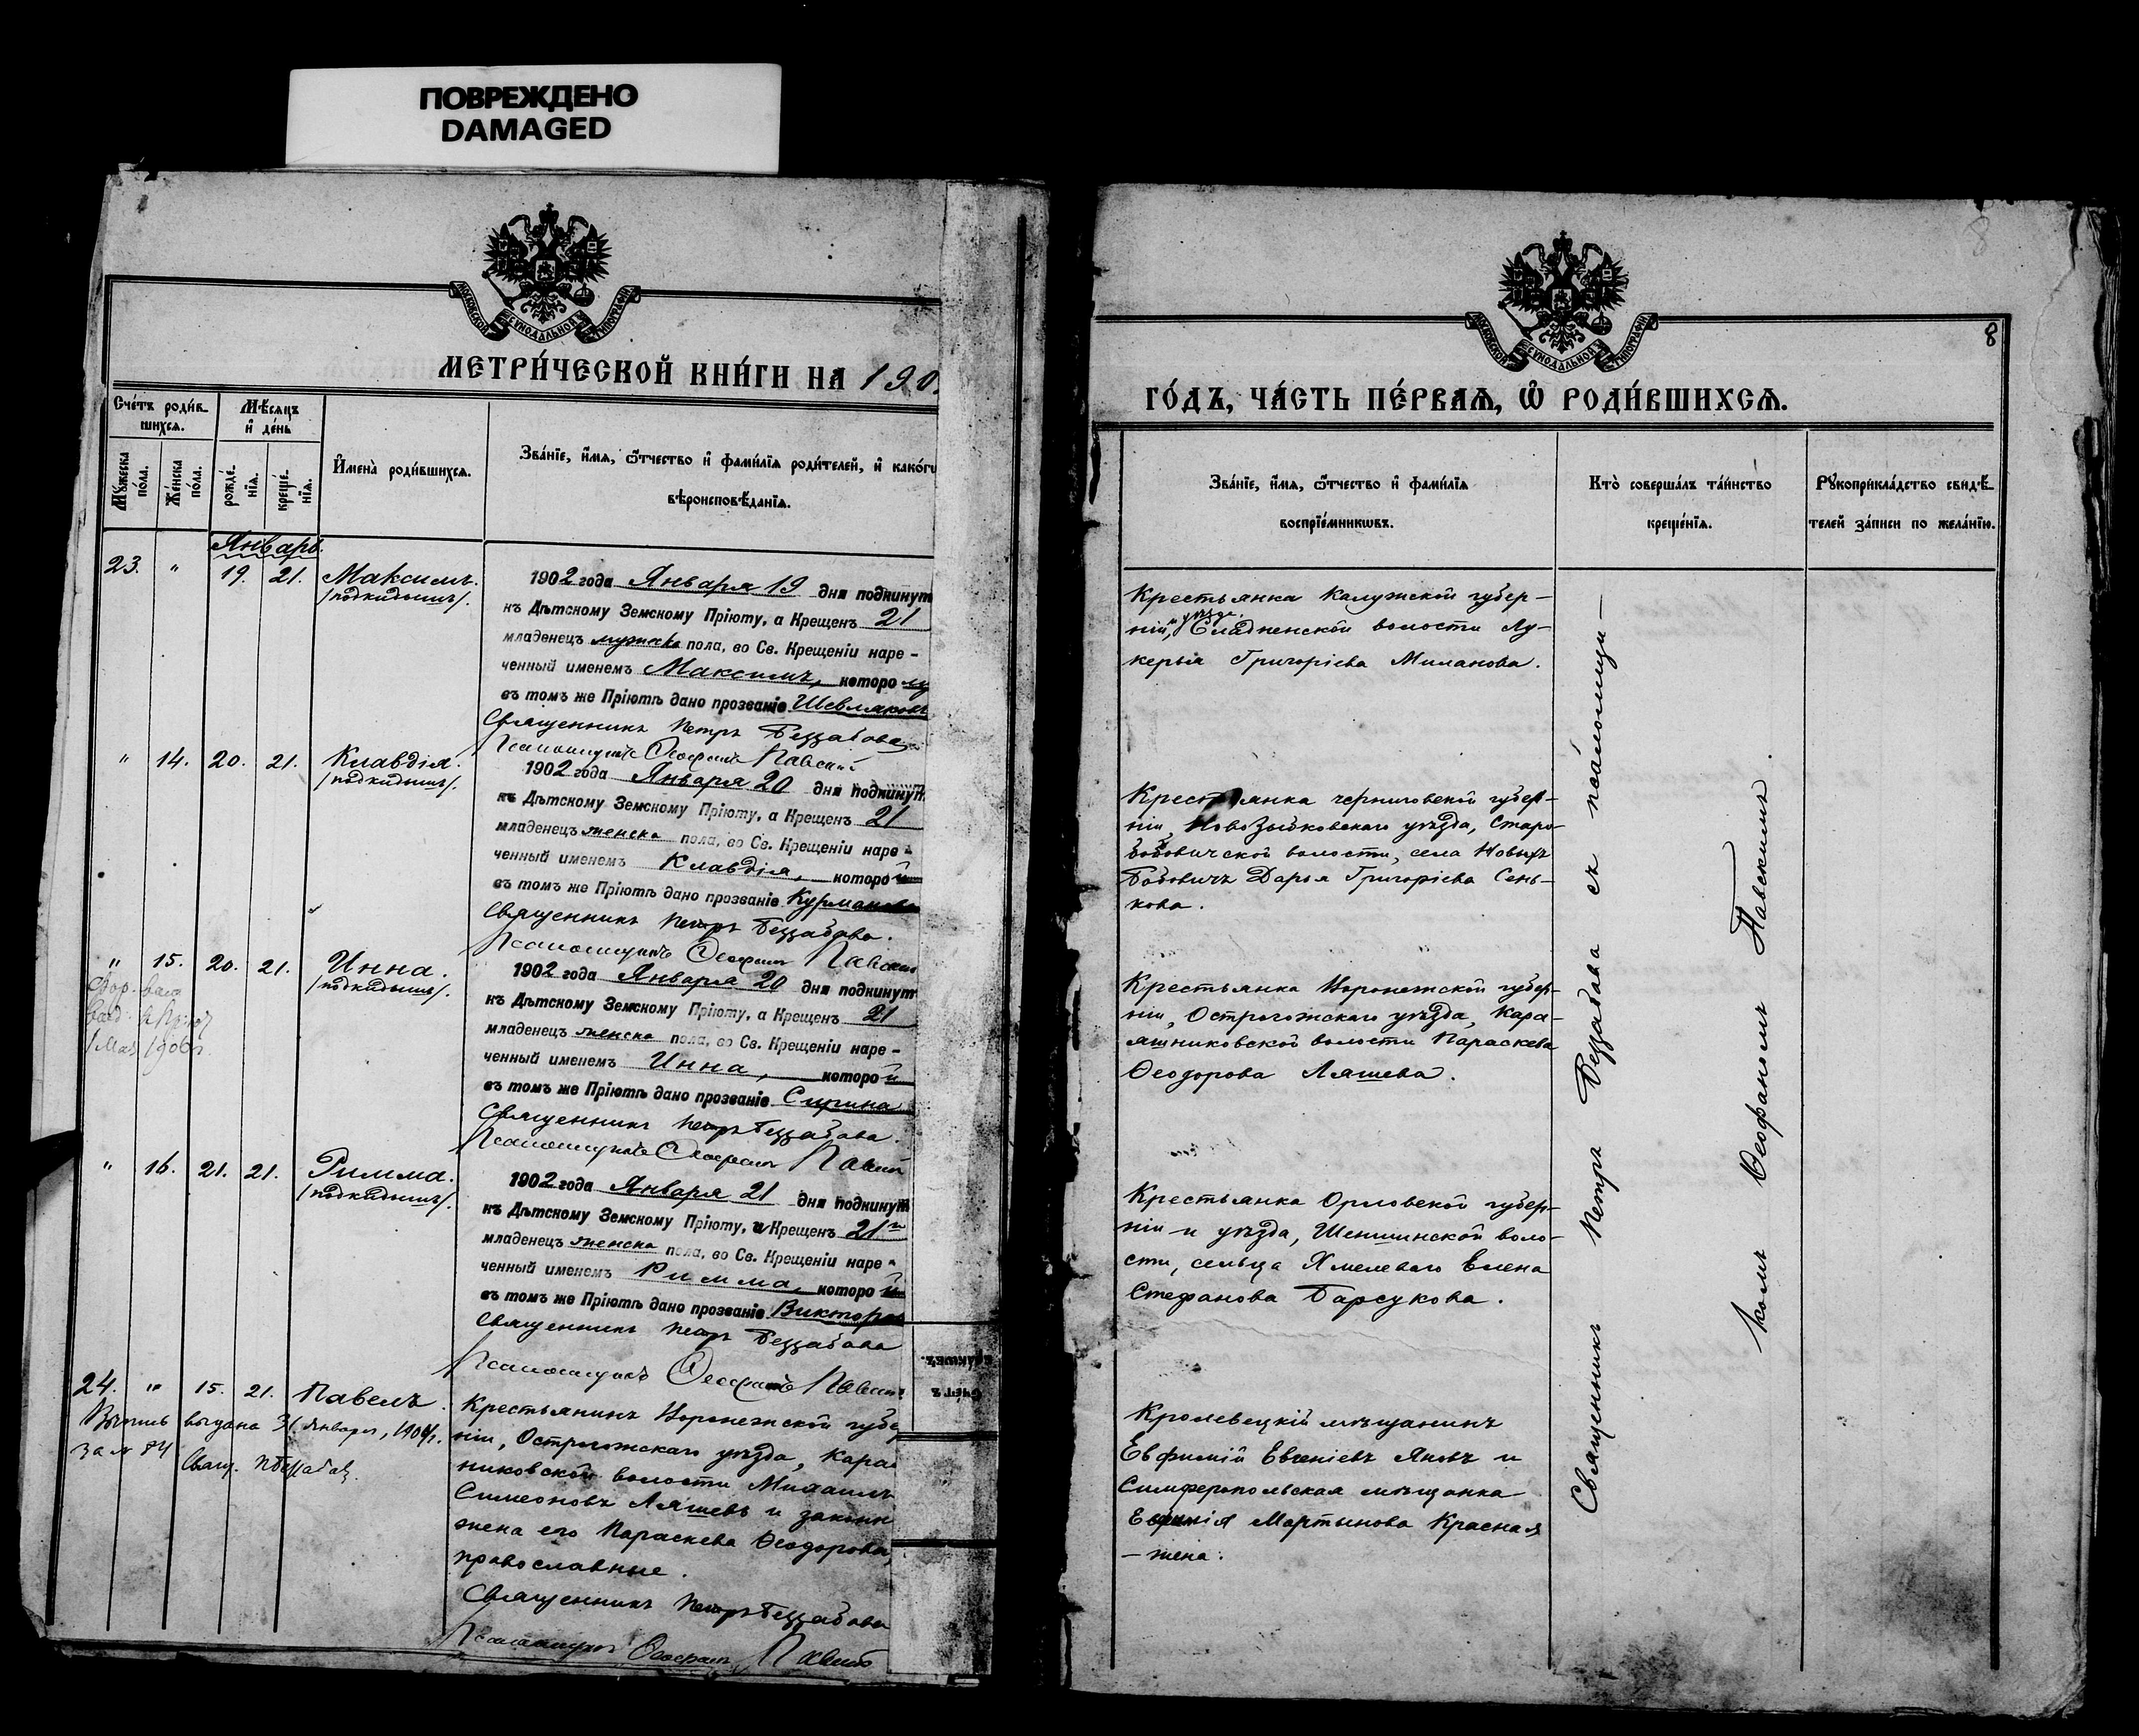 ПОВРЕЖДЕНО
DAMAGED
МОСКОВСКОЙ СѴНОДАЛЬНОЙ ТИПОГРАФІИ
МЕТРИ́ЧЕСКОЙ КНИ́ГИ НА 190
Сче́тъ роди́в-
шихся.
Мѣ́сяцъ
и҆ де́нь
Мꙋ́жеска
по́ла.
Же́нска
по́ла.
рожде́-
нїя.
креще́-
нїя.
И҆мена̀ роди́вшихся.
Зва́нїе, и҆́мя, ѻ҆́тчество и҆ фами́лїя роди́телей, и҆ како́гѡ
вѣроисповѣ́данїя.
Январь.
23. " 19. 21. Максимъ.
/подкидышъ/.
1902 года Января 19 дня подкинут
къ Дѣтскому Земскому Пріюту, а Крещенъ 21
младенецъ мужска пола, во Св. Крещеніи наре-
ченный именемъ Максимъ, которому
въ томъ же Пріютѣ дано прозваніе Шевляковъ
Священникъ Петръ Беззабава
Псаломщикъ Ѳеофанъ Павскій
" 14. 20. 21. Клавдія.
/подкидышъ/.
1902 года Января 20 дня подкинут
къ Дѣтскому Земскому Пріюту, а Крещенъ 21
младенецъ женска пола, во Св. Крещеніи наре-
ченный именемъ Клавдія, которой
въ томъ же Пріютѣ дано прозваніе Курманова
Священникъ Петръ Беззабава.
Псаломщикъ Ѳеофанъ Павскій
" 15. 20. 21. Инна.
/подкидышъ/.
1902 года Января 20 дня подкинут
къ Дѣтскому Земскому Пріюту, а Крещенъ 21
младенецъ женска пола, во Св. Крещеніи наре-
ченный именемъ Инна, которой
въ томъ же Пріютѣ дано прозваніе Сирина
Священникъ Петръ Беззабава.
Псаломщикъ Ѳеофанъ Павскій
" 16. 21. 21. Римма.
/подкидышъ/.
1902 года Января 21 дня подкинут
къ Дѣтскому Земскому Пріюту, а Крещенъ 21
младенецъ женска пола, во Св. Крещеніи наре-
ченный именемъ Римма, которой
въ томъ же Пріютѣ дано прозваніе Викторов
Священникъ Петръ Беззабава
Псаломщикъ Ѳеофанъ Павскій
24. " 15. 21. Павелъ.
выдана 31 января, 190
за № 84
Свящ. П Беззабав
Крестьянинъ Воронежской губе
ніи, Острогожскаго уѣзда, Кара
никовской волости Михаилъ
Симеоновъ Ляшевъ и законн
жена его Параскева Ѳеодорова,
православные.
Священникъ Петръ Беззабава
Псаломщикъ Ѳеофанъ Павскій
8
МОСКОВСКОЙ СѴНОДАЛЬНОЙ ТИПОГРАФІИ
8
ГО́ДЪ, ЧА́СТЬ ПЕ́РВАЯ, Ѡ҆ РОДИ́ВШИХСЯ.
Зва́нїе, и҆́мя, ѻ҆́тчество и҆ фами́лїя
воспрїе́мникѡвъ.
Кто̀ соверша́лъ та́инство
креще́нїя.
Рꙋкоприкла́дство свидѣ́-
телей за́писи по жела́нїю.
Крестьянка Калужской губер-
ніи, и уѣзда, Сладненской волости Лу-
керья Григоріева Миланова.
Крестьянка Черниговской губер-
ніи, Новозыбковскаго уѣзда, Старо-
бобовичской волости, села Новыхъ
Бобовичъ Дарья Григоріева Сень-
кова.
Крестьянка Воронежской губер-
ніи, Острогожскаго уѣзда, Кара-
яшниковской волости Параскева
Ѳеодорова Ляшева.
Крестьянка Орловской губер-
ніи и уѣзда, Шеншинской воло-
сти, сельца Хмелеваго Елена
Стефанова Барсукова.
Кролевецкій мѣщанинъ
Евфимій Евгеніевъ Яновъ и
Симферопольская мѣщанка
Мартынова Красная
- жена.
Священникъ Петръ Беззабава съ псаломщи-
комъ Ѳеофаномъ Павскимъ.